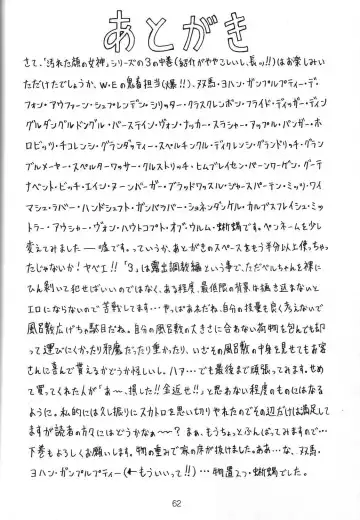 あとがき
さて、『汚れた顔の女神』シリーズの3の中巻(紹介がややこしいし、長ッ!!)はお楽しみい
ただけたでしょうか、W・Eの鬼畜担当(爆!!)、双馬・ヨハン・ガンプルプティー・デ・
フォン・アウファーン・シュプレンデン・シリッター・クラスクレンボン・フライド・ディッガー・ディン
グル・ダングル・ドングル・バースティン・ヴォン・ナッカー・スラシャー・アップル・バンガー・ホ
ロビッツ・チコレンシ・グランダッティー・スペルキンクル・ディクレンシ・グランドリッチ・グラン
ブルメーヤー・スペルターワッサー・クルストリッチ・ヒムブレイセン・バーンワーゲン・グーテ
ナベント・ビッチ・エイン・ヌーンバーガー・ブラッドワスル・ジャースパーテン・ミッツ・ワイ
マシュ・ラバー・ハンドシュフト・ガンバラバー・ショネンダンケル・カルブスフレイシュ・ミッ
トラー・アウシャー・ヴォン・ハウトコプト・オブ・ウルム・蜥蜴です。ペンネームを少し
変えてみました──嘘です。っていうか、あとがきのスペースをもう半分以上使っちゃっ
たじゃないか!ヤベェ!!『3』は露出調教編という事で、ただベルちゃんを裸に
ひん剥いて犯せばいいのではなく、ある程度、最低限の背景は描き込まないと
エロにならないので苦戦してます…やっぱあれだね、自分の技量も良く考えないで
風呂敷広げちゃ駄目だね。自分の風呂敷の大きさに合わない荷物を包んでも却
って運びにくかったり邪魔だったり重かったり、いざその風呂敷の中身を見せてもお客
さんに喜んで貰えるかどうか怪しいし。ハァ…でも最後まで頑張ってみます。せめ
て買ってくれた人が「あ〜、損した!!金返せ!!」と思わない程度のものにはなる
ように。私的には久し振りにスカトロを思い切りやれたのでその辺だけは満足して
ますが読者の方々にはどうかなぁ〜?まぁ、もうちょっとふんばってみますので…
下巻もよろしくお願いします。物の重みで家の床が抜けました。ああ…な、双馬・
ヨハン・ガンプルプティー(←もういいって!!)…物置エつ・蜥蜴でした。
62